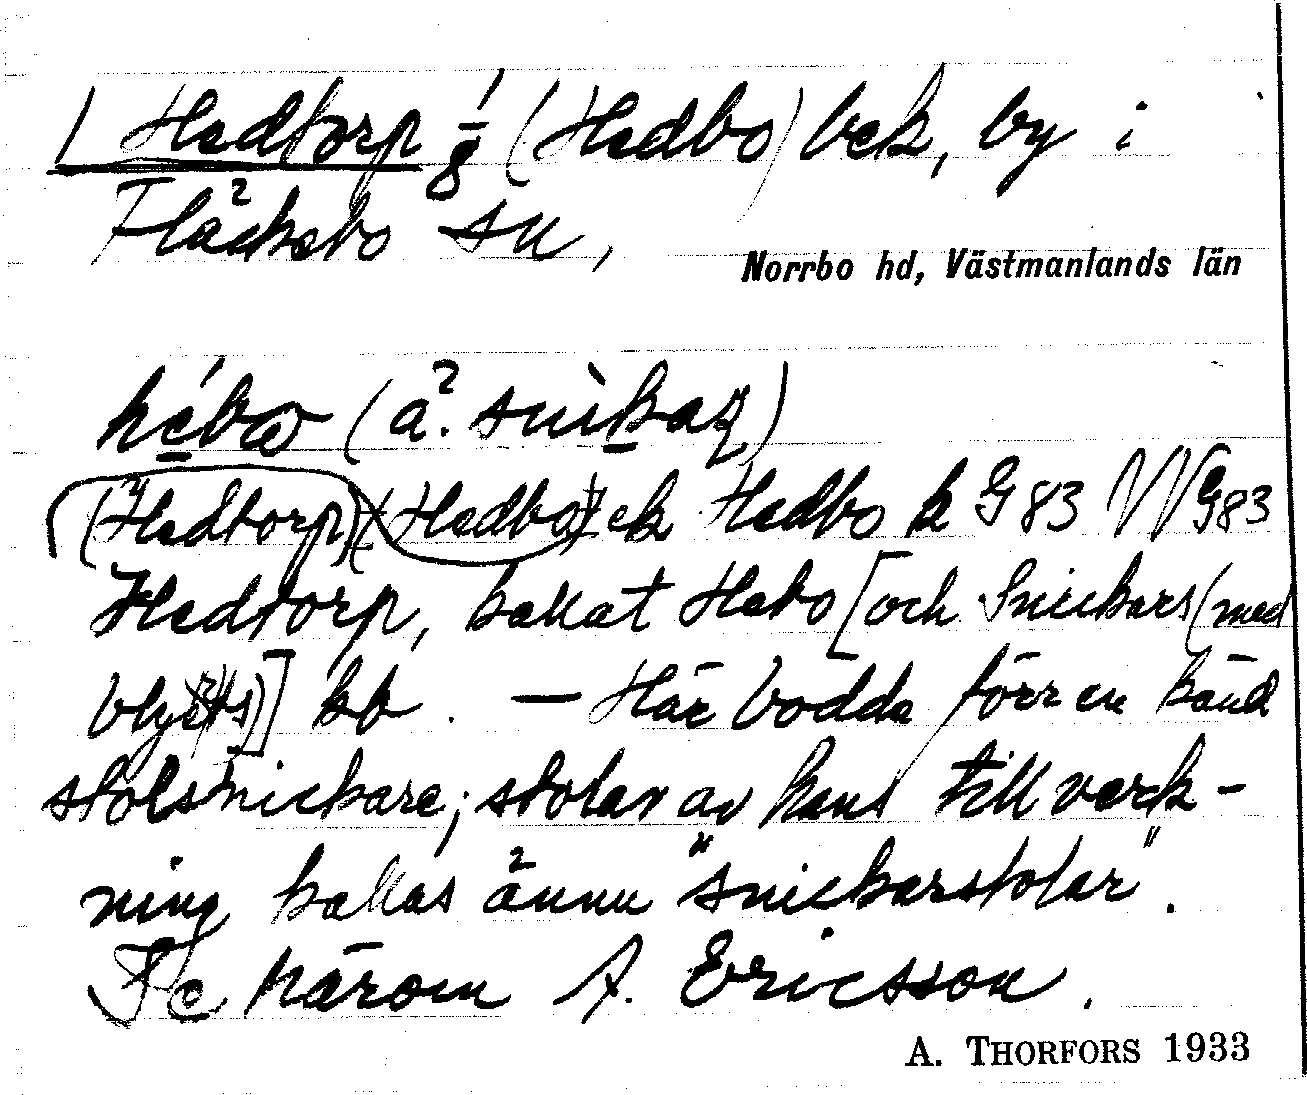 1 Hedtorp 1/8 (Hedbo) bek, by i
Fläckebo sn,
Norrbo hd, Västmanlands län
(Hedtorp) (Hedbo) ek Hedbo k G 83 G83
Hedtorp, kallat Hebo [och Snickars (med
kb. — Här bodde förr en känd
stolsnickare; stolar av hans tillverk-
ning kallas ännu "snickarstolar".
Se härom A. Ericsson.
A. THORFORS 1933